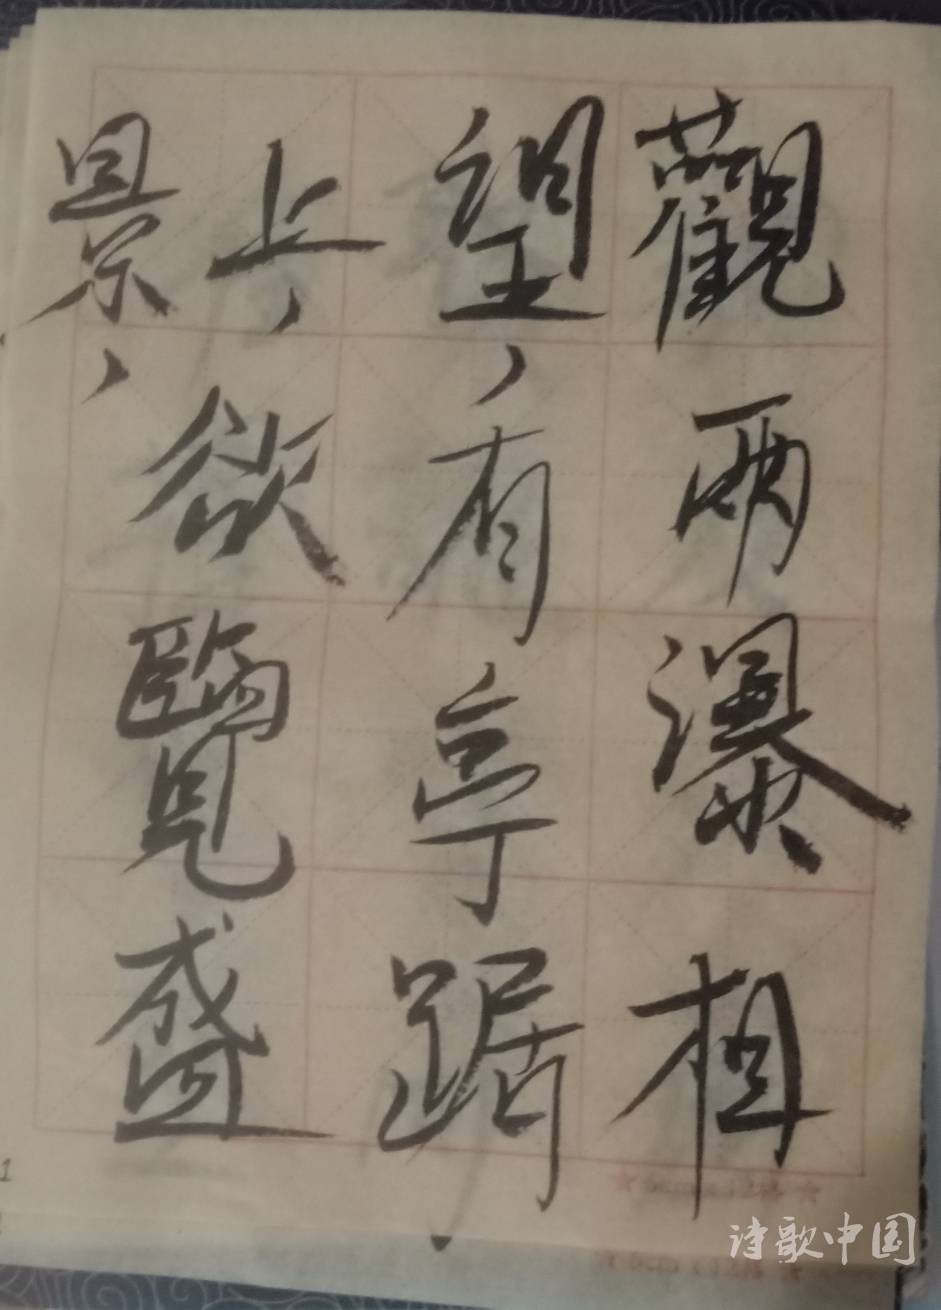 觀兩瀑相
望、有亭踞
上、欲覽盛
景、
诗歌中国